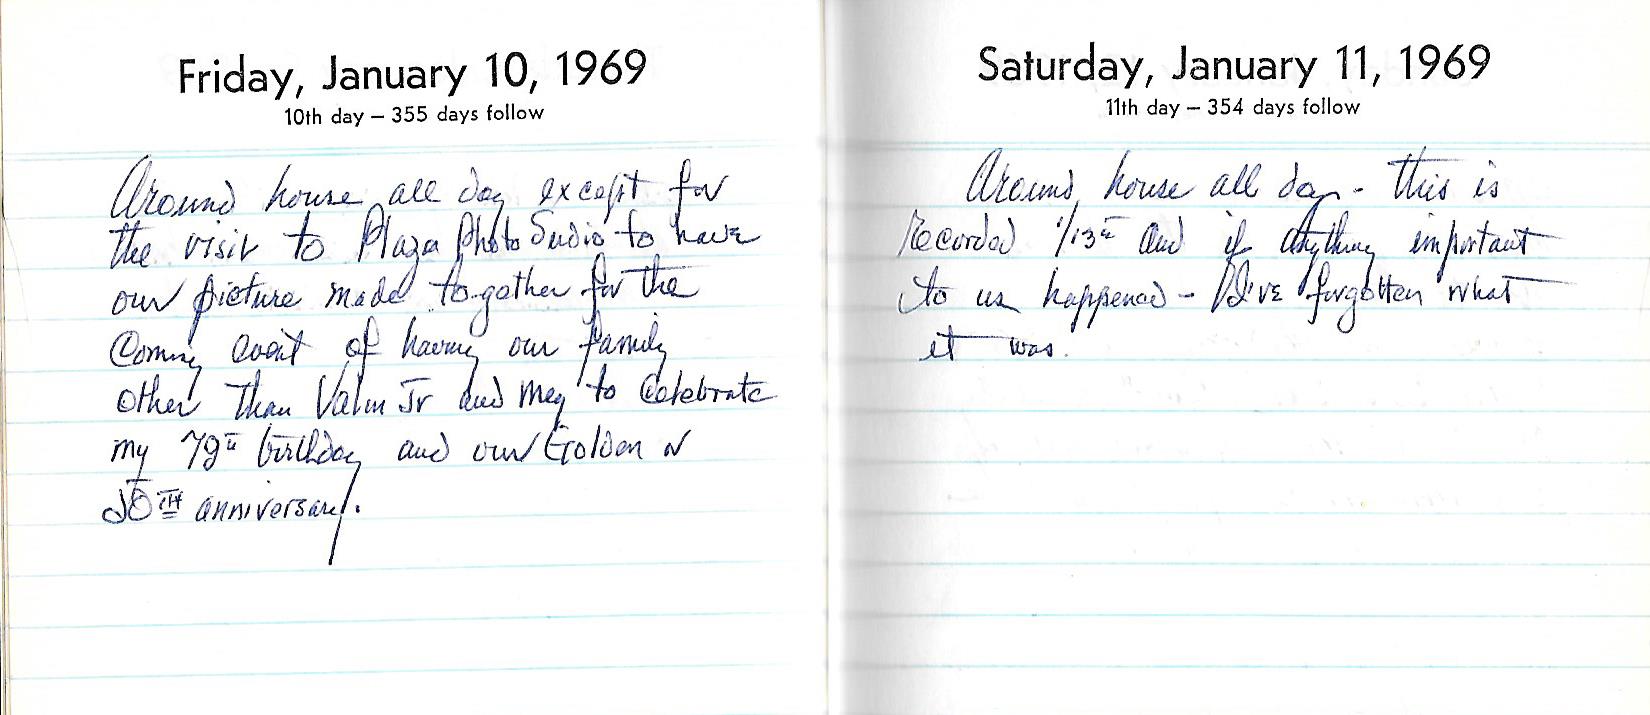 Friday, January 10, 1969
10th day – 355 days follow
Around house all day except for
the visit to Plaza Photo Sudio to have
our picture made to-gether for the
Coming event of having our family
other than Valin Jr and Meg to Celebrate
my 79th birthday and our Golden or
50TH anniversary.
Saturday, January 11, 1969
11th day – 354 days follow
Around house all day - this is
Recorded 1/13th and if anything important
to us happened - I've forgotten what
it was.